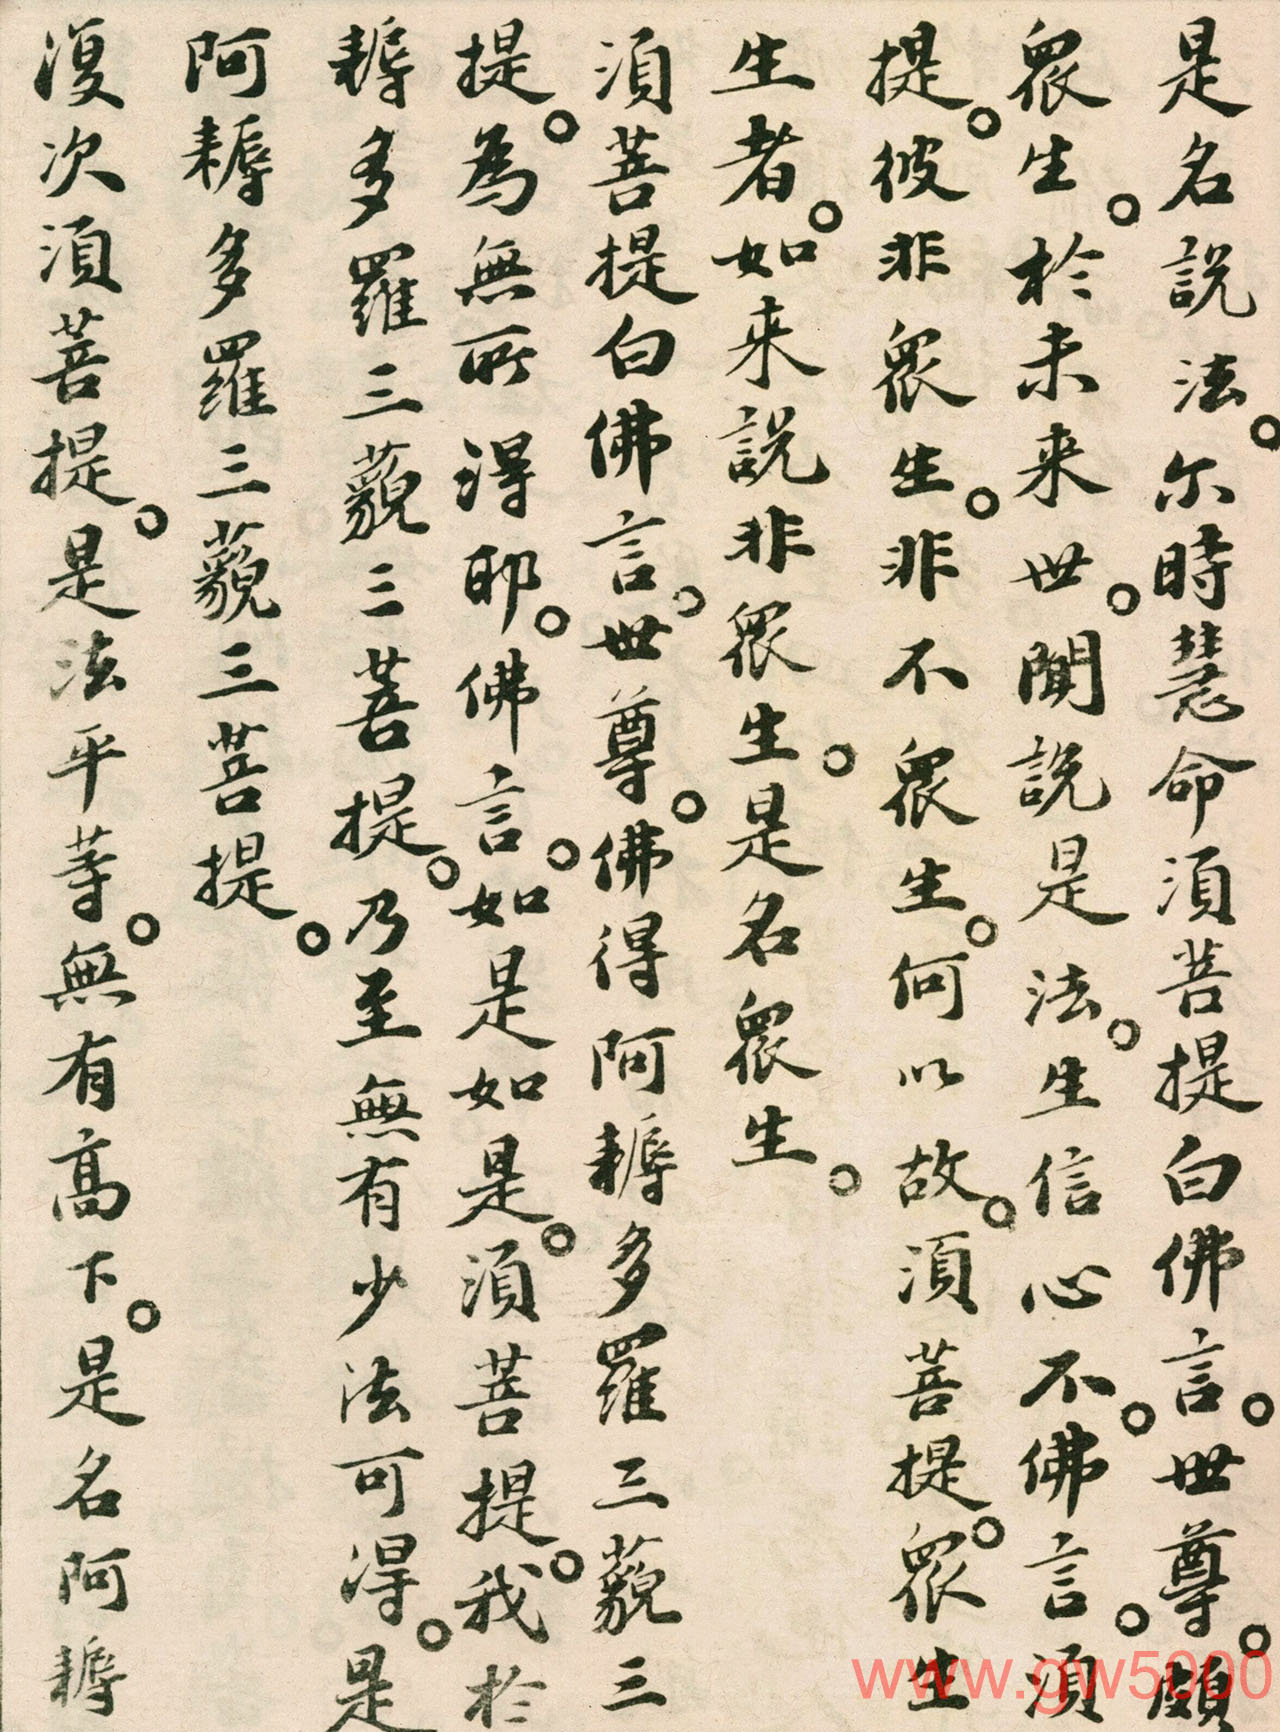 是名說法。尒時慧命須菩提白佛言。世尊。頗
眾生。於未来世。聞說是法。生信心不。佛言。須
提。彼非眾生。非不眾生。何以故。須菩提。眾生
生者。如来說非眾生。是名眾生。
須菩提白佛言。世尊。佛得阿耨多羅三藐三
提。為無所得耶。佛言。如是如是。須菩提。我於
耨多羅三藐三菩提。乃至無有少法可得。是
阿耨多羅三藐三菩提。
復次須菩提。是法平等。無有高下。是名阿耨
www.gw5000